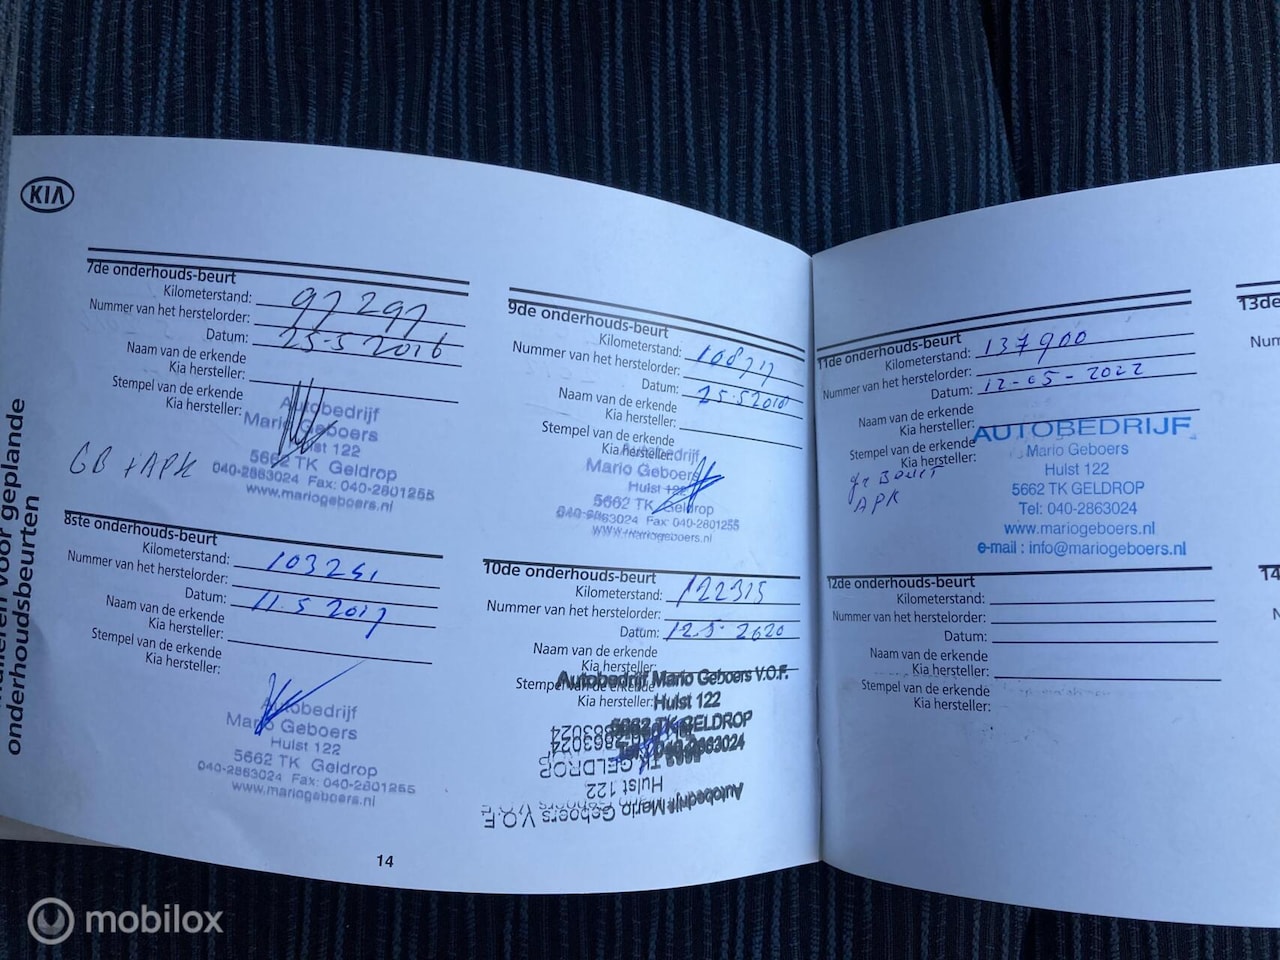 KIA
onderhoudsbeurten
voor geplande
7de onderhouds-beurt
Kilometerstand: 97297
Nummer van het herstelorder:
Datum: 25-5 2016
Naam van de erkende
Kia hersteller:
Stempel van de erkende
Kia hersteller:
Autobedrijf
Mario Geboers
Hulst 122
5662 TK Geldrop
040-2863024 Fax: 040-2801255
www.mariogeboers.nl
GB + APK
8ste onderhouds-beurt
Kilometerstand: 103251
Nummer van het herstelorder:
Datum: 11.5 2017
Naam van de erkende
Kia hersteller:
Stempel van de erkende
Kia hersteller:
Autobedrijf
Mario Geboers
Hulst 122
5662 TK Geldrop
040-2863024 Fax: 040-2801255
www.mariogeboers.nl
14
9de onderhouds-beurt
Kilometerstand:
Nummer van het herstelorder:
Datum: 25-5 2018
Naam van de erkende
Kia hersteller:
Stempel van de erkende
Kia hersteller:
Autobedrijf
Mario Geboers
Hulst 122
5662 TK Geldrop
040-2863024 Fax: 040-2801255
www.mariogeboers.nl
10de onderhouds-beurt
Kilometerstand: 122315
Nummer van het herstelorder:
Datum: 12.5-2020
Naam van de erkende
Kia hersteller:
Stempel van de erkende
Kia hersteller:
Autobedrijf Mario Geboers V.O.F.
Hulst 122
5662 TK GELDROP
Tel: 040-2863024
2863024
TK GELDROP
Hulst 122
Autobedrijf Mario Geboers V.O.F.
11de onderhouds-beurt
Kilometerstand: 137900
Nummer van het herstelorder:
Datum: 12-05-2022
Naam van de erkende
Kia hersteller:
Stempel van de erkende
Kia hersteller:
gr Beurt
APK
AUTOBEDRIJF
Mario Geboers
Hulst 122
5662 TK GELDROP
Tel: 040-2863024
www.mariogeboers.nl
e-mail : info@mariogeboers.nl
12de onderhouds-beurt
Kilometerstand:
Nummer van het herstelorder:
Datum:
Naam van de erkende
Kia hersteller:
Stempel van de erkende
Kia hersteller:
13de
Num
14
mobilox